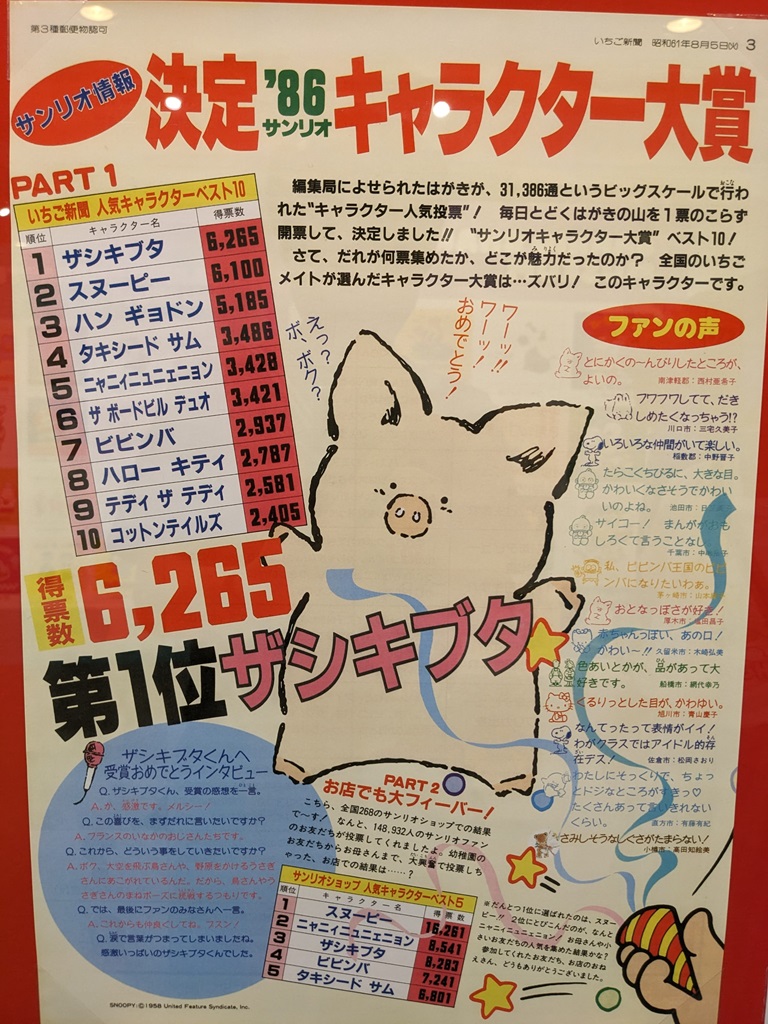 第3種郵便物認可
いちご新聞 昭和61年8月5日(火) 3
サンリオ情報
決定 '86 サンリオ キャラクター大賞
PART 1
いちご新聞 人気キャラクターベスト10
順位 キャラクター名 得票数
1 ザシキブタ 6,265
2 スヌーピー 6,100
3 ハン ギョドン 5,185
4 タキシード サム 3,486
5 ニャニィニュニェニョン 3,428
6 ザ ボードビル デュオ 3,421
7 ビビンバ 2,937
8 ハロー キティ 2,787
9 テディ ザ テディ 2,581
10 コットンテイルズ 2,405
編集局によせられたはがきが、31,386通というビッグスケールで行わ
れた“キャラクター人気投票”! 毎日とどくはがきの山を1票のこらず
開票して、決定しました!! “サンリオキャラクター大賞” ベスト10!
さて、だれが何票集めたか、どこが魅力だったのか? 全国のいちご
メイトが選んだキャラクター大賞は…ズバリ! このキャラクターです。
えっ?
ボ、ボク?
ワーッ!!
ワーッ!
おめでとう!
ファンの声
とにかくの〜んびりしたところが、
よいの。 南津軽郡:西村亜希子
フワフワしてて、だき
しめたくなっちゃう!?
川口市:三宅久美子
いろいろな仲間がいて楽しい。
稲敷郡:中野晋子
たらこくちびるに、大きな目。
かわいくなさそうでかわい
いのよね。 池田市:
サイコー! まんががおも
しろくて言うことなし
千葉市:
私、ビビンバ王国のビビ
ンバになりたいわぁ。
茅ヶ崎市:山本
おとなっぽさが好き!
厚木市:塩田昌子
赤ちゃんっぽい、あの口!
かわい〜!! 久留米市:木崎弘美
色あいとかが、品があって大
好きです。 船橋市:網代幸乃
くるりっとした目が、かわゆい。
旭川市:青山慶子
なんてったって表情がイイ!
わがクラスではアイドル的存
在デス! 佐倉市:松岡さおり
わたしにそっくりで、ちょっ
とドジなところがすきっ♡
たくさんあって言いきれない
くらい。 直方市:有薗有紀
さみしそうなしぐさがたまらない!
小樽市:高田知絵美
得票数 6,265
第1位 ザシキブタ
ザシキブタくんへ
受賞おめでとうインタビュー
Q、ザシキブタくん、受賞の感想を一言。
A、か、感激です。メルシー!
Q、この喜びを、まずだれに言いたいですか?
A、フランスのいなかのおじさんたちです。
Q、これから、どういう事をしていきたいですか?
A、ボク、大空を飛ぶ鳥さんや、野原をかけるうさ
ぎさんにあこがれているんだ。だから、鳥さんやう
さぎさんのまねポーズに挑戦するつもりです。
Q、では、最後にファンのみなさんへ一言。
A、これからも仲良くしてね。ブスン!
Q、涙で言葉がつまってしまいましたね。
感激いっぱいのザシキブタくんでした。
PART 2
お店でも大フィーバー!
こちら、全国268のサンリオショップでの結果
で〜す! なんと、148,932人のサンリオファン
のお友だちが投票してくれましたよ。幼稚園の
お友だちからお母さんまで、大興奮で投票しち
ゃった、お店での結果は……?
サンリオショップ 人気キャラクターベスト5
順位 キャラクター名 得票数
1 スヌーピー 16,261
2 ニャニィニュニェニョン 8,541
3 ザシキブタ 8,283
4 ビビンバ 7,241
5 タキシード サム 6,801
※だんとつ1位に選ばれたのは、スヌー
ピー!! 2位にとびこんだのが、なんと
ニャニィニュニェニョン! お母さんや小
さいお友だちの人気を集めた結果かな?
参加してくれたお友だち、お店のおね
えさん、どうもありがとうございました。
SNOOPY:©1958 United Feature Syndicate, Inc.